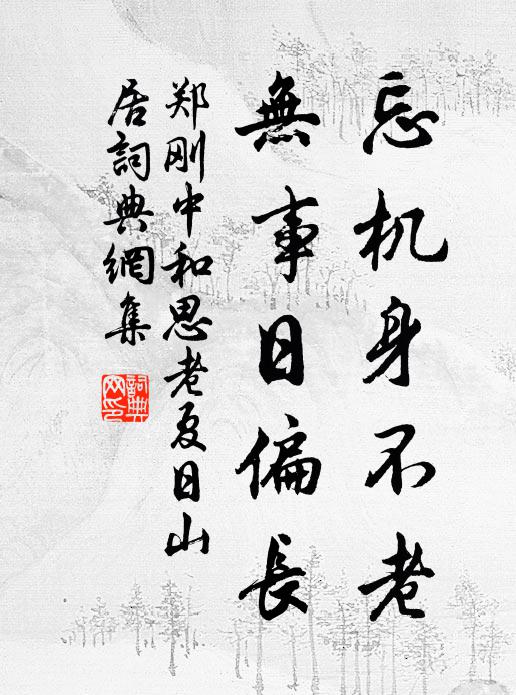 忘机身不老
無事日偏長
郑刚中和思老夏日山
居詞典網集
詞典
网印